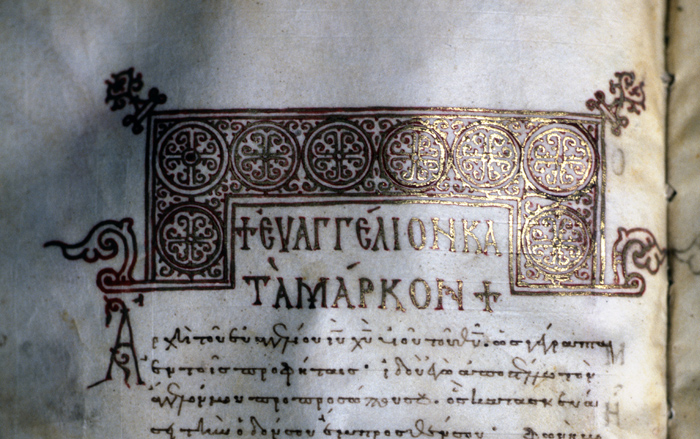 + ΕΥΑΓΓΕΛΙΟΝ ΚΑ
ΤΑ ΜΑΡΚΟΝ +
Ἀρχὴ τοῦ εὐαγγελίου ἰῦ χῦ υἱοῦ τοῦ θῦ. ὡς γέγραπται
ἐν τοῖς προφήταις· ἰδοὺ ἐγὼ ἀποστέλλω τὸν
ἄγγελόν μου πρὸ προσώπου σου. ὃς κατασκευά
σει τὴν ὁδόν σου ἔμπροσθέν σου· φωνὴ